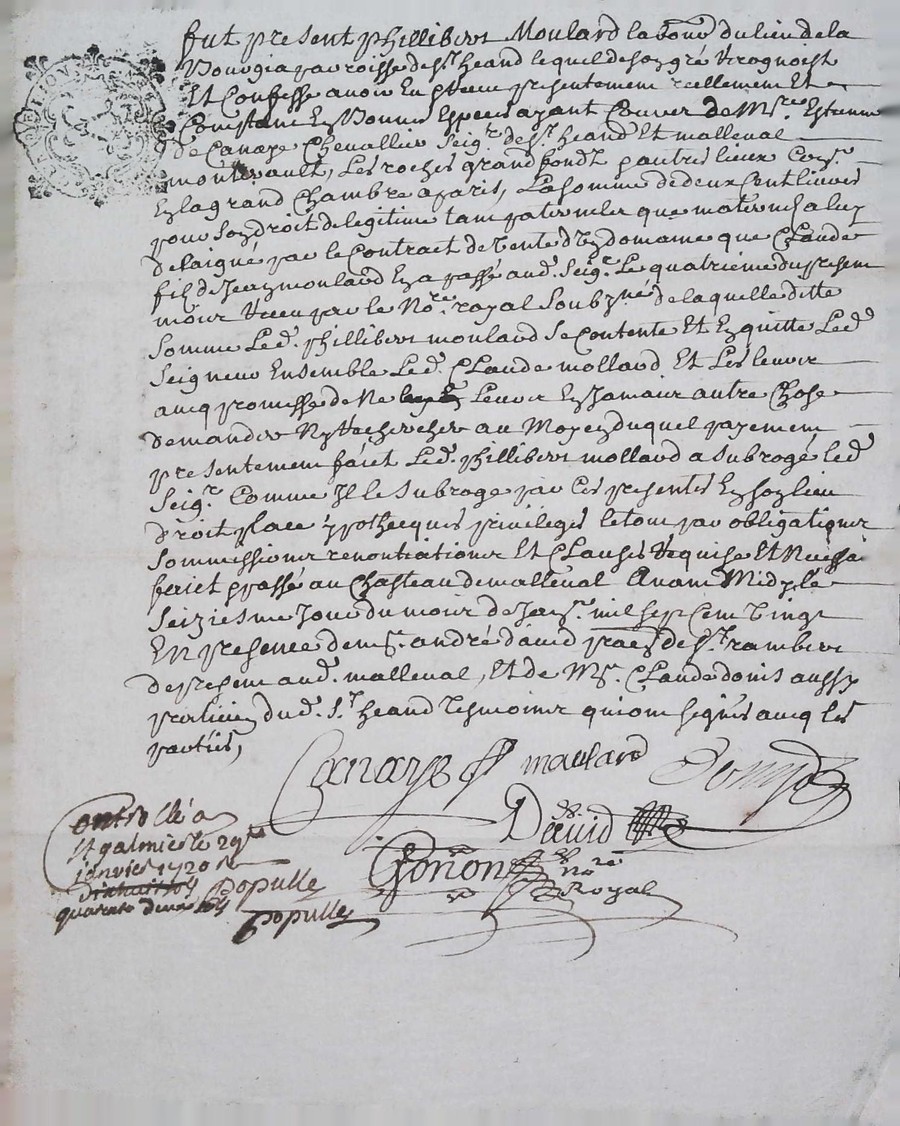 fut present phillibert Moulard labour du lieu de la
Bourgia parroisse de st heand lequel de son gré Recognoist
Et Confesse avoir Eu presentement reellement Et
Constant En Bonnes Especes ayant Cour de Mre Estienne
de Canaye Chevallier Seigr de st heand Et malleval
montevault, Les roches grandfondz autres lieux Coner
En la grand Chambre a paris, La somme de deux Cent livres
pour son droit de legitime tant paternelle que maternel a luy
delaigné par le Contract de Vente d'Un domaine que Claude
fils de Jean moulard En a passé aud. Seigr Le quatrieme du present
mois Receu par le Nore royal Soubzné de laquelle ditte
Somme Led. phillibert moulard se Contente Et En quitte Led
Seigneur Ensemble Led. Claude mollard Et Les leurs
avecq promesse de Ne Leur En Jamais autre Chose
demander Ny Rechercher au Moyen duquel payement
presentement faict Led. phillibert mollard a subrogé led
Seigr Comme Il le subroge par Ces presentes En son lieu
droit place ypotheques privileges le tout par obligations
Sommissions renontiations Et Clauses Requise Et Necessa
faict passé au Chasteau de malleval Avant Midy le
Seiziesme Jour du mois de Janr mil sept Cent Vingt
En presence de mr. andré david de st rambert
de present aud. malleval, Et de Mr. Claude donis aussy
dud. st heand tesmoins qui ont signés avecq les
parties,
Canaye maulard
David
Gonon nore
Royal
Controllé a
st galmier le 29e
janvier 1720 R
quarante deux sols Populle
Populle